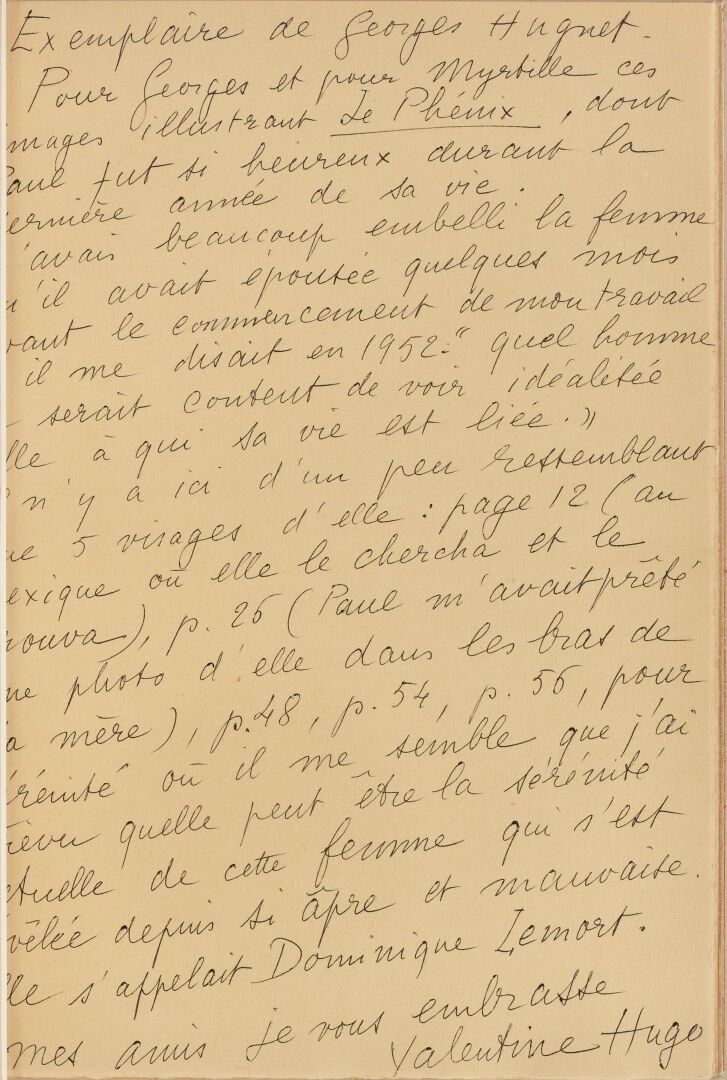 Exemplaire de Georges Hugnet.
Pour Georges et pour Myrtille ces
mages illustrant Le Phénix, dont
Paul fut si heureux durant la
ernière année de sa vie.
'avais beaucoup embelli la femme
u'il avait épousée quelques mois
vant le commencement de mon travail
il me disait en 1952 : " quel homme
serait content de voir idéalisée
lle à qui sa vie est liée. »
n'y a ici d'un peu ressemblant
ue 5 visages d'elle : page 12 (au
exique où elle le chercha et le
rouva), p. 26 (Paul m'avait prêté
ne photo d'elle dans les bras de
a mère), p. 48, p. 54, p. 56, pour
rénité où il me semble que j'ai
révu quelle peut être la sérénité
ctuelle de cette femme qui s'est
vélée depuis si âpre et mauvaise.
lle s'appelait Dominique Lemort.
mes amis je vous embrasse
Valentine Hugo